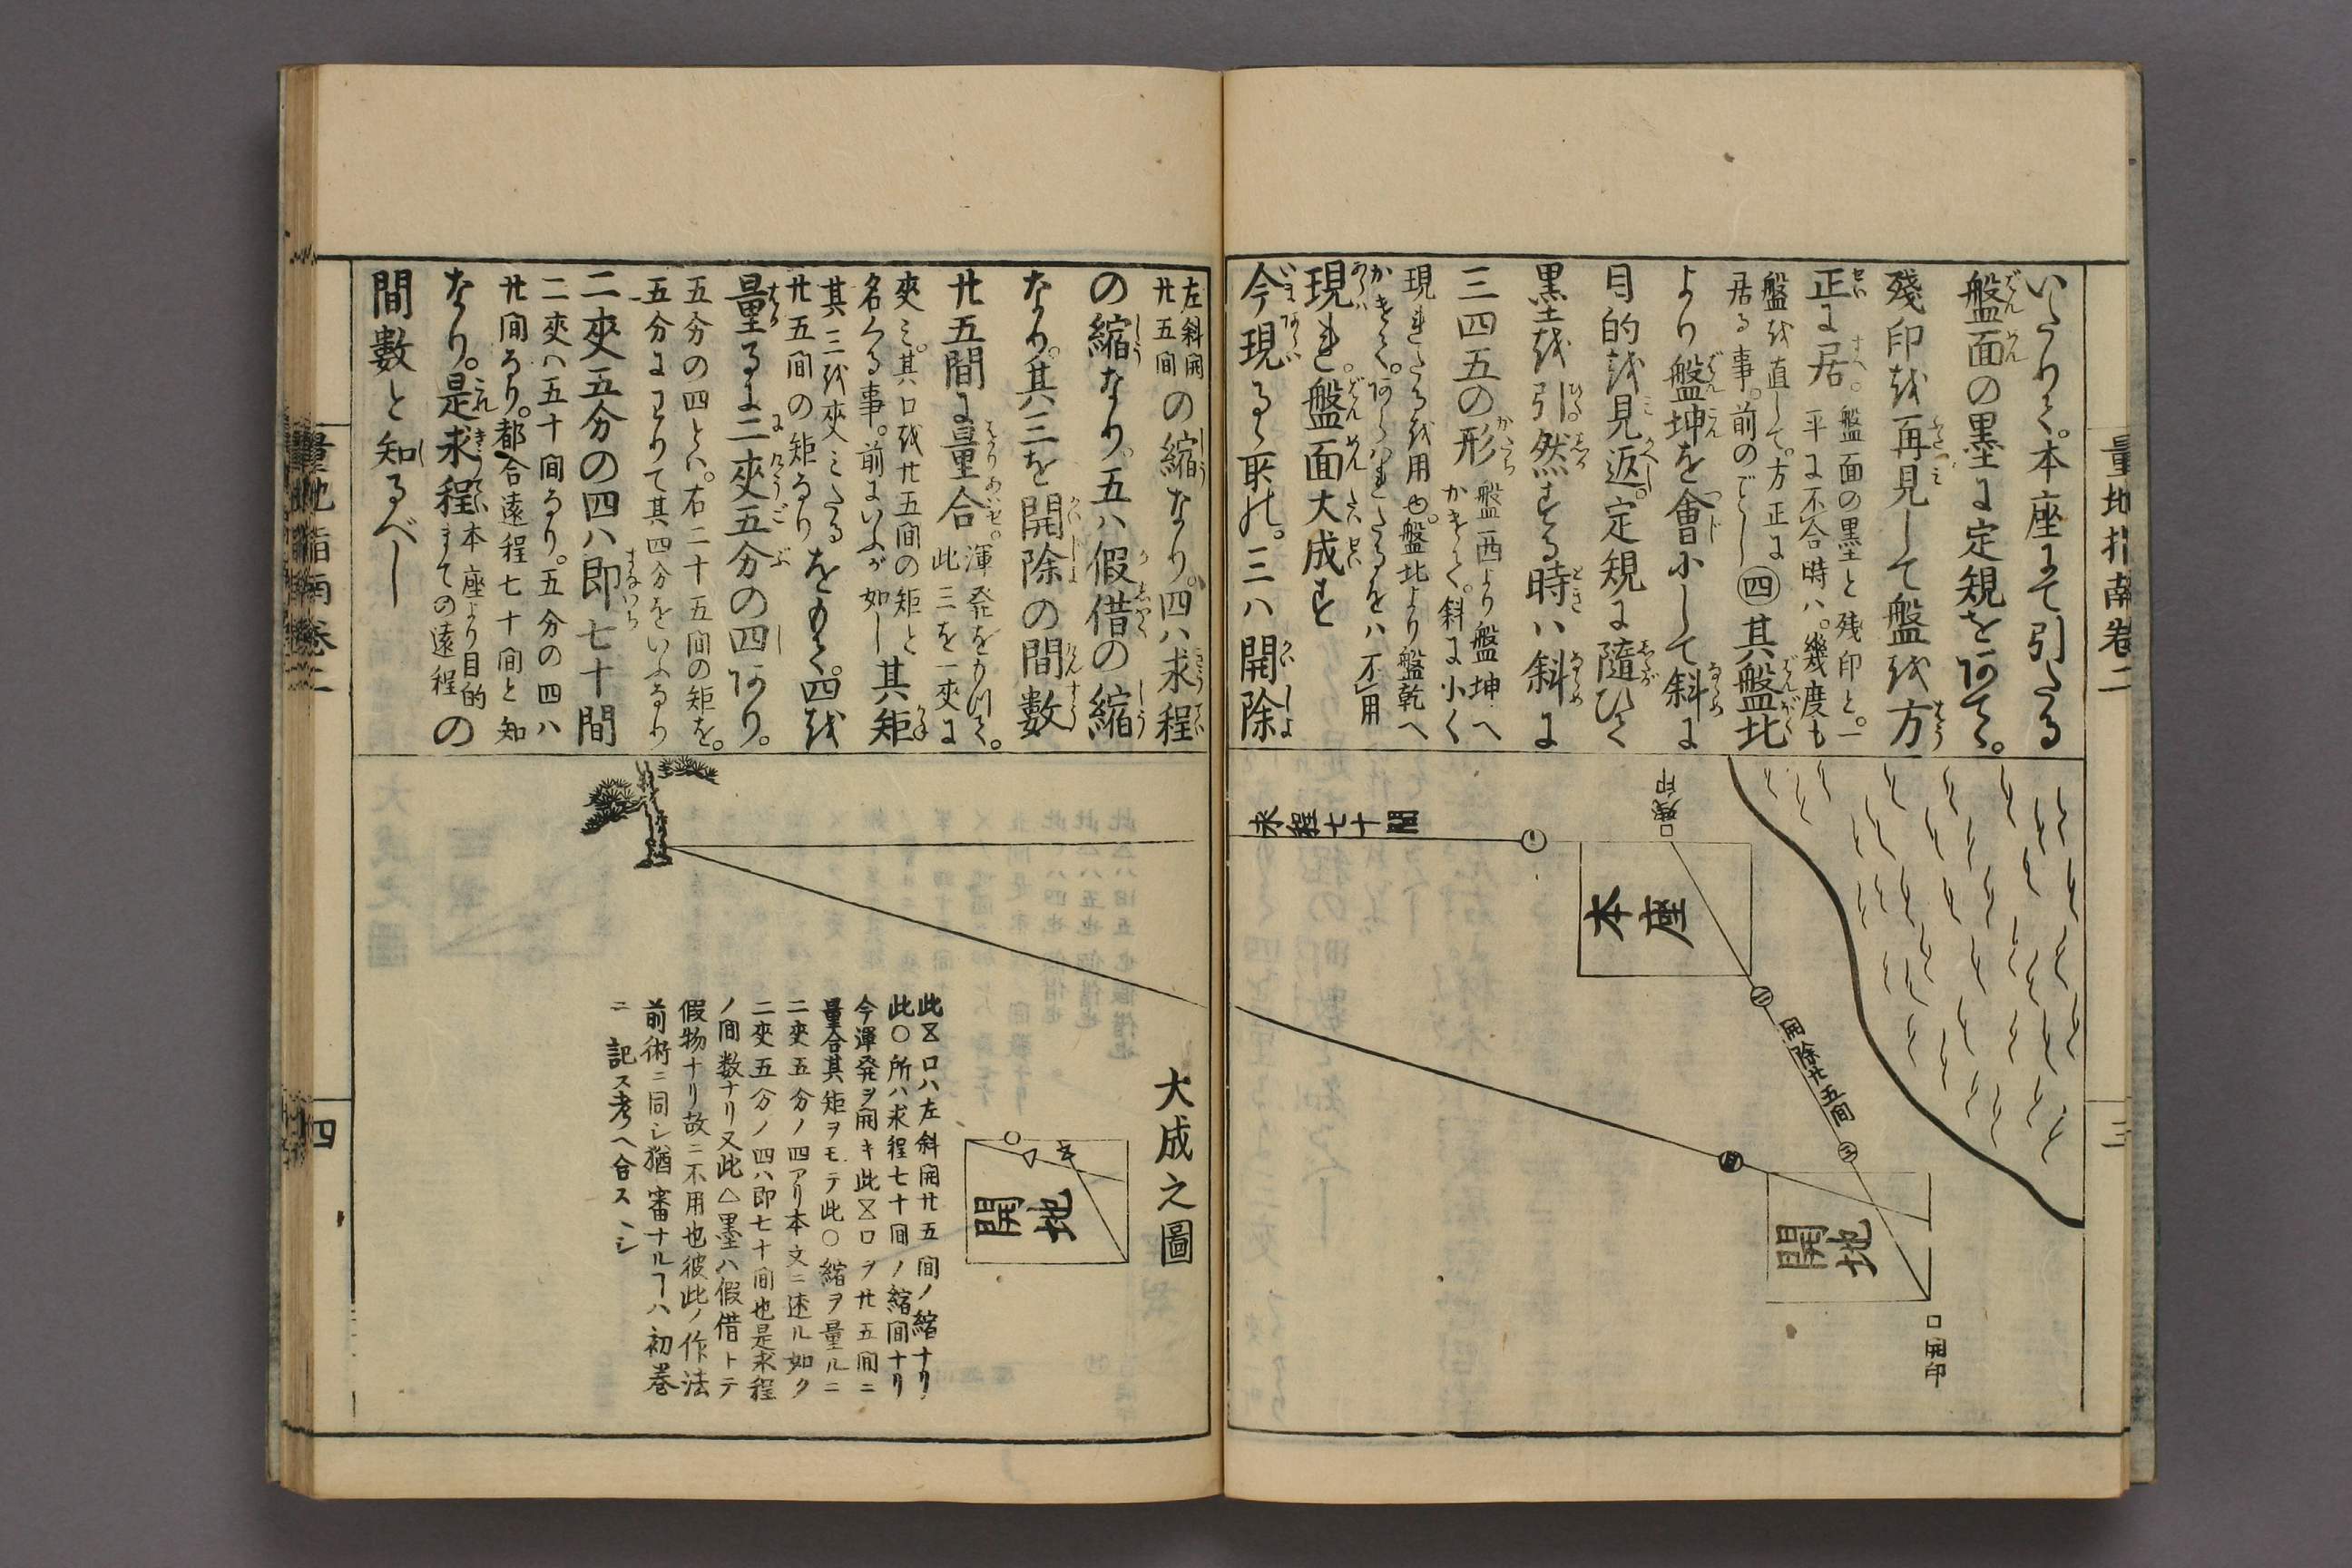 量地指南卷二
三
いたりく。本座まて引たる
盤面の墨に定規をあてゝ。
殘印を再見して盤を方
正に居。盤面の墨と残印と。一
平に不合時ハ。幾度も
盤を直して。方正に
居る事。前のごとし㊃其盤北
より盤坤を會小して斜に
目的を見返。定規に隨ひて
墨を引。然する時ハ斜に
三四五の形盤西より盤坤へ
かきく。斜に小く
現れたるを用也。盤北より盤乾へ
かきく。あらはれたるをハ不用
現れ。盤面大成す
今現るゝ所の。三ハ開除
左斜開
廿五間の縮なり。四ハ求程
の縮なり。五ハ假借の縮
なり。其三を開除の間數
廿五間に量合。渾発をひらきて。
此三を一夾に
夾ミ。其口を廿五間の矩と
名くる事。前にいふが如し其矩
其三を夾ミたる
廿五間の矩なりをもて。四を
量るに二夾五分の四あり。
五分の四とハ。右二十五間の矩を。
五分にわりて其四分をいふなり
二夾五分の四ハ即七十間
二夾ハ五十間なり。五分の四ハ
廿間なり。都合遠程七十間と知
なり。是求程本座より目的
まての遠程の
間數と知るべし
殘印
求程七十間
一
本座
二
開除廿五間
三
四
開地
開印
大成之圖
開地
此⧖口ハ左斜開廿五間ノ縮ナリ
此〇所ハ求程七十間ノ縮間ナリ
今渾発ヲ開キ此⧖口ヲ廿五間ニ
量合其矩ヲモテ此〇縮ヲ量ルニ
二夾五分ノ四アリ本文ニ述ル如ク
二夾五分ノ四ハ即七十間也是求程
ノ間数ナリ又此△墨ハ假借トテ
假物ナリ故ニ不用也彼此ノ作法
前術ニ同シ猶審ナルヿハ初巻
ニ記ス考ヘ合スヘシ
量地指南卷二
四